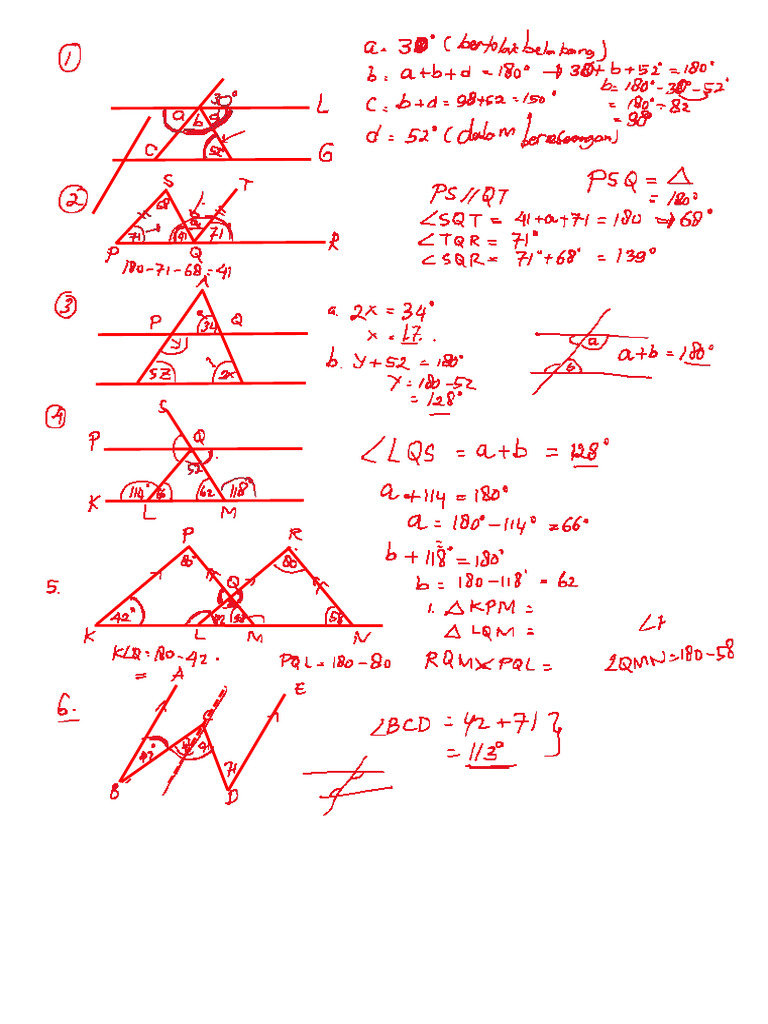 1
a = 30° (bertolak belakang)
b = a+b+d = 180° → 30+b+52° = 180°
b = 180°-30°-52°
= 180°-82
= 98°
c = b+d = 98+52 = 150°
d = 52° (dalam berseberangan)
30°
L
a b d
C 52° G
2
S T
68
71 41 71
P Q R
180-71-68=41
PS//QT
PSQ = △
= 180°
∠SQT = 41+a+71 = 180 ⇒ 68°
∠TQR = 71°
∠SQR = 71°+68° = 139°
3
A
P 34 Q
y
52 2x
a. 2x = 34°
x = 17.
b. y+52 = 180°
y = 180-52
= 128°
a
b
a+b = 180°
4
S
P Q
52
114° 62 118°
K L M
∠LQS = a+b = 128°
a+114 = 180°
a = 180°-114° = 66°
b+118° = 180°
b = 180-118° = 62
5.
P R
80° 80
Q
42° 82 58 58
K L M N
KLQ = 180-42.
=
PQL = 180-80
1. △KPM =
△LQM =
RQM × PQL =
∠QMN = 180-58
6.
A E
C
42°
B D
∠BCD = 42+71
= 113°